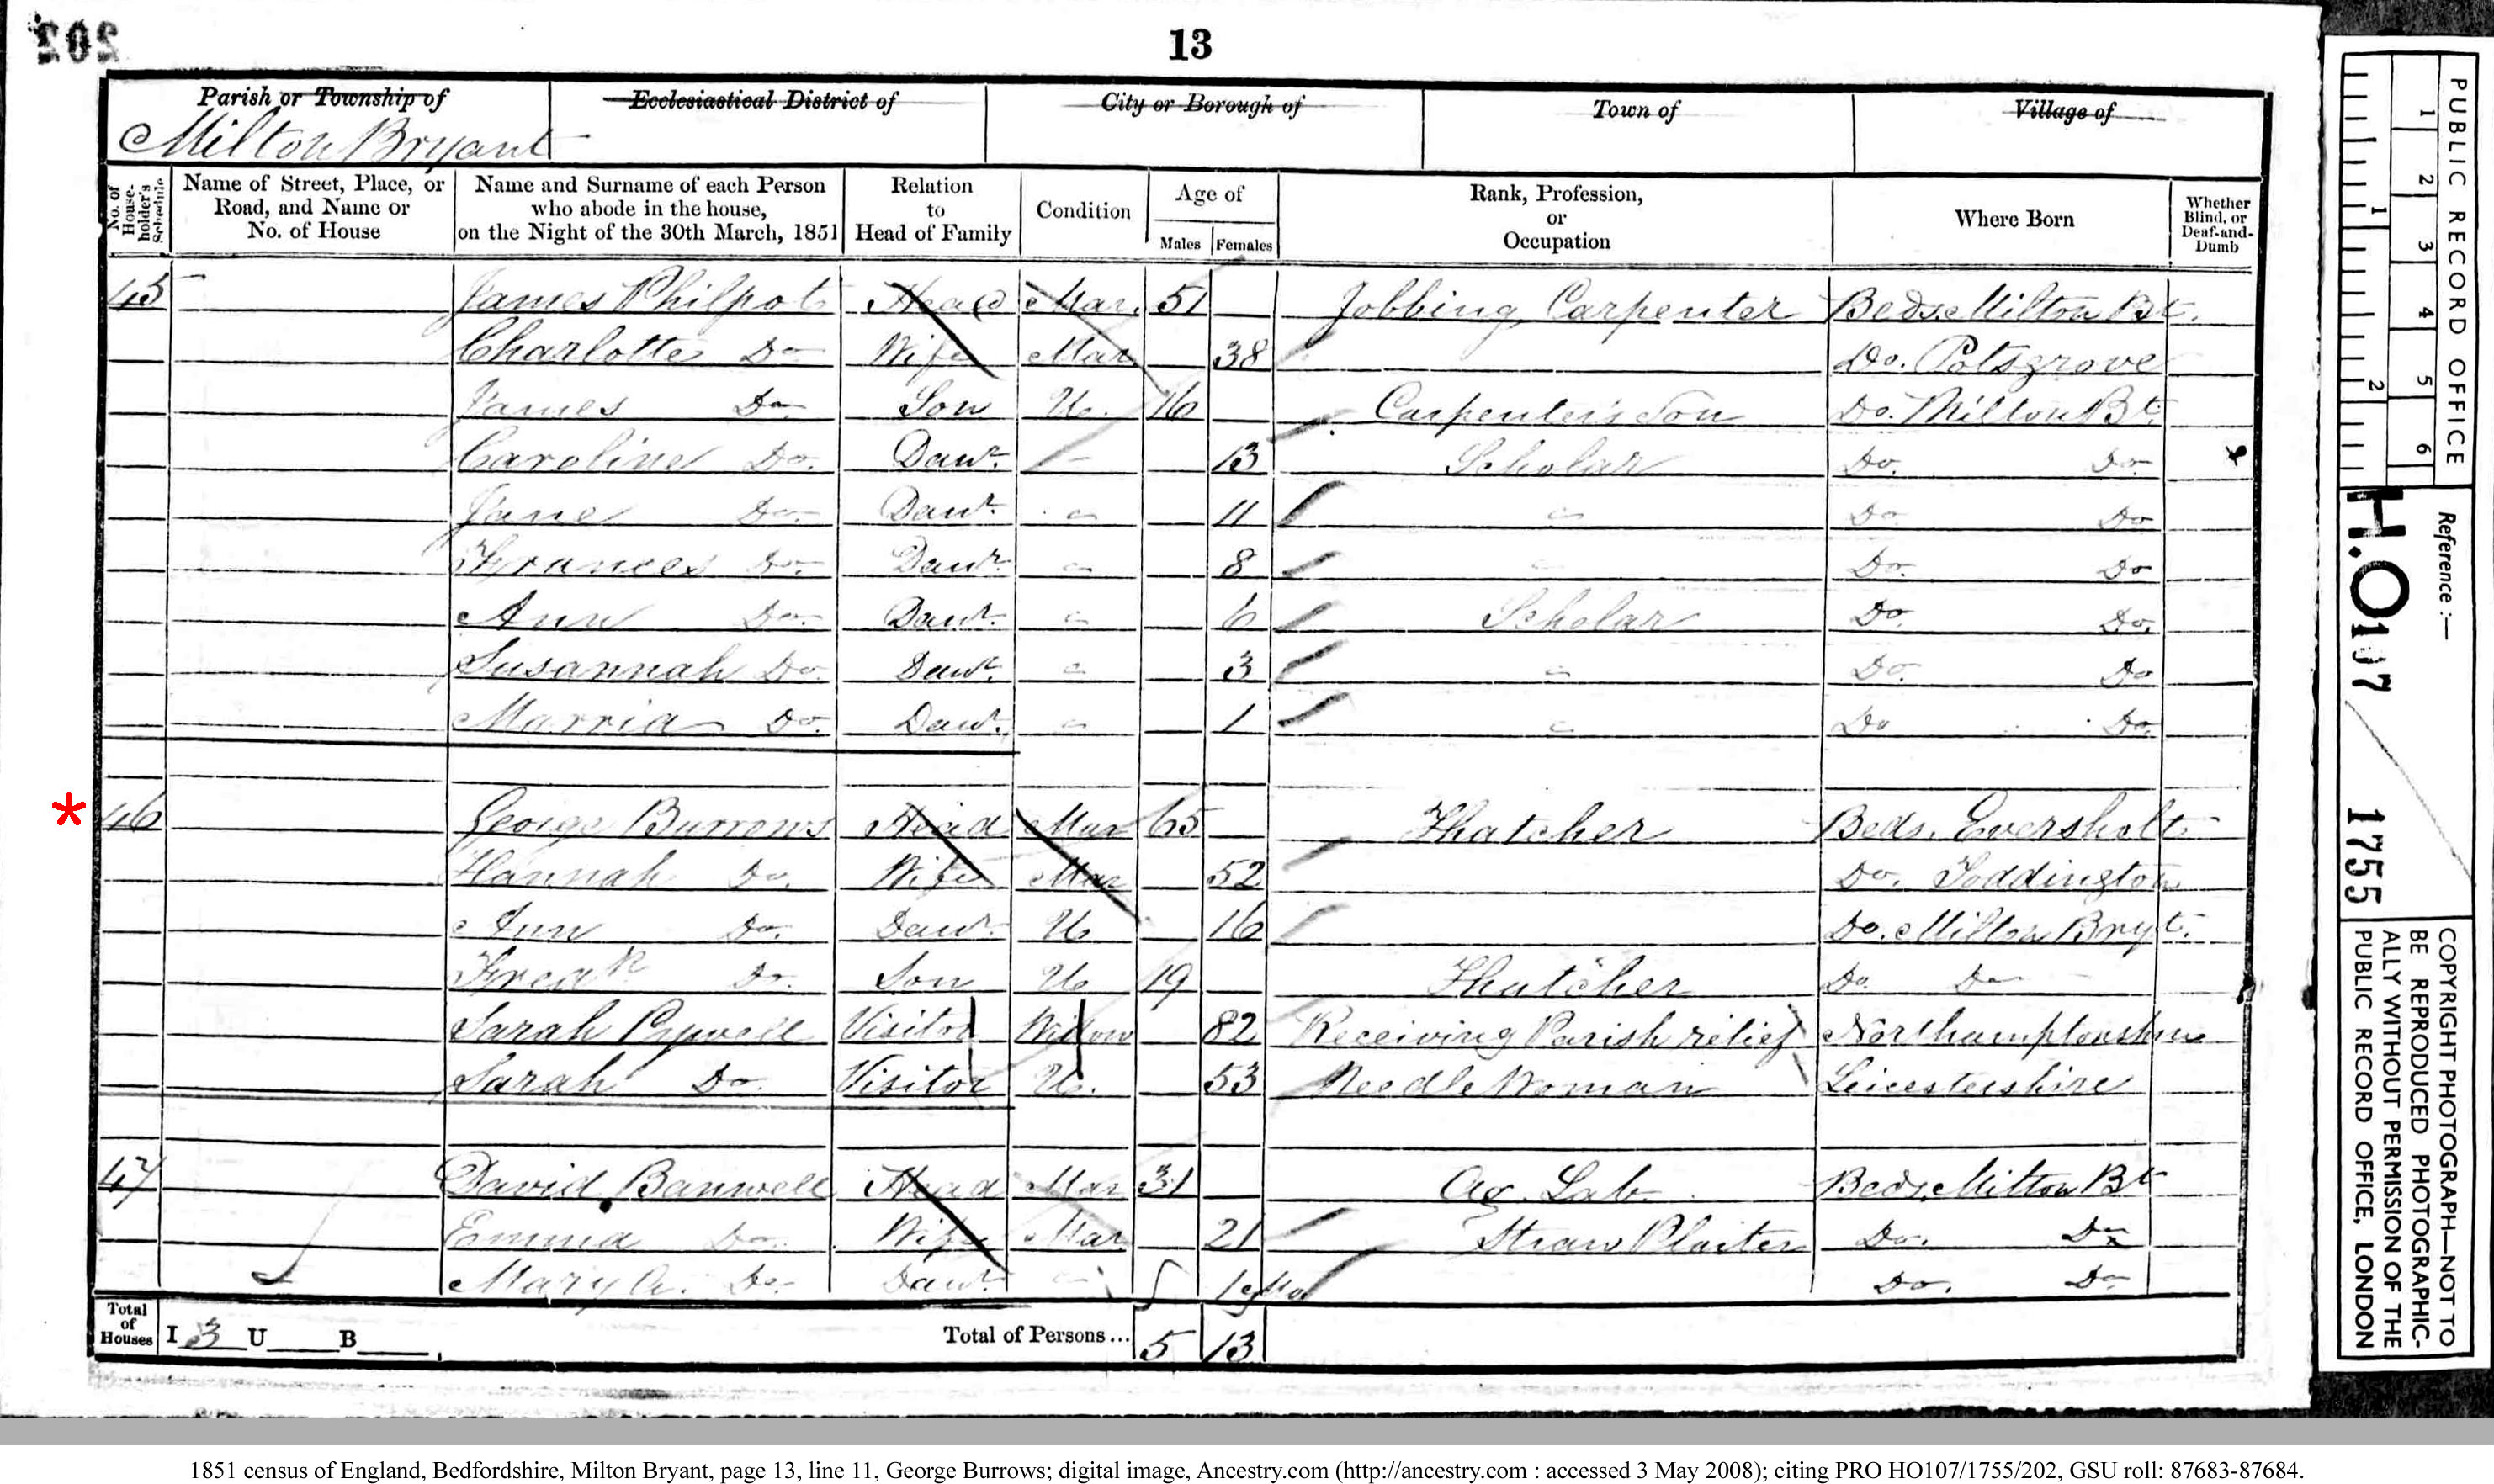 202
13
Parish or Township of Ecclesiastical District of City or Borough of Town of Village of
Milton Bryant
No. of House-holder's Schedule Name of Street, Place, or Road, and Name or No. of House Name and Surname of each Person who abode in the house, on the Night of the 30th March, 1851 Relation to Head of Family Condition Age of Males Females Rank, Profession, or Occupation Where Born Whether Blind, or Deaf-and-Dumb
45 James Philpot Head Mar. 51 Jobbing Carpenter Beds. Milton Bt.
Charlotte Do Wife Mar 38 Do. Potsgrove
James Do Son U. 16 Carpenter's Son Do. Milton Bt.
Caroline Do. Dawr. 13 Scholar Do. Do
Jane Do. Dawr. 11 Do Do
Frances Do. Dawr. 8 Do. Do
Ann Do. Dawr. 6 Scholar Do. Do.
Susannah Do. Dawr. 3 Do. Do
Marria Do. Dawr. 1 Do Do.
* 46 George Burrows Head Mar 65 Thatcher Beds. Eversholt
Hannah Do. Wife Mar 52 Do. Toddington
Ann Do. Dawr. U 16 Do. Milton Bryt.
Fredk Do. Son U 19 Thatcher Do. Do
Sarah Pywell Visitor Widow 82 Receiving Parish relief Northamptonshire
Sarah Do. Visitor U. 53 Needle Woman Leicestershire
47 David Banwell Head Mar 31 Ag. Lab. Beds. Milton Bt
Emma Do. Wife Mar 21 Straw Plaiter Do. Do
Mary A. Do. Dawr. Do. Do
Total of Houses I 3 U B Total of Persons... 5 13
PUBLIC RECORD OFFICE
1 2 3 4 5 6
1 2
Reference :—
H.O 107 1755
COPYRIGHT PHOTOGRAPH—NOT TO
BE REPRODUCED PHOTOGRAPHIC-
ALLY WITHOUT PERMISSION OF THE
PUBLIC RECORD OFFICE, LONDON
1851 census of England, Bedfordshire, Milton Bryant, page 13, line 11, George Burrows; digital image, Ancestry.com (http://ancestry.com : accessed 3 May 2008); citing PRO HO107/1755/202, GSU roll: 87683-87684.